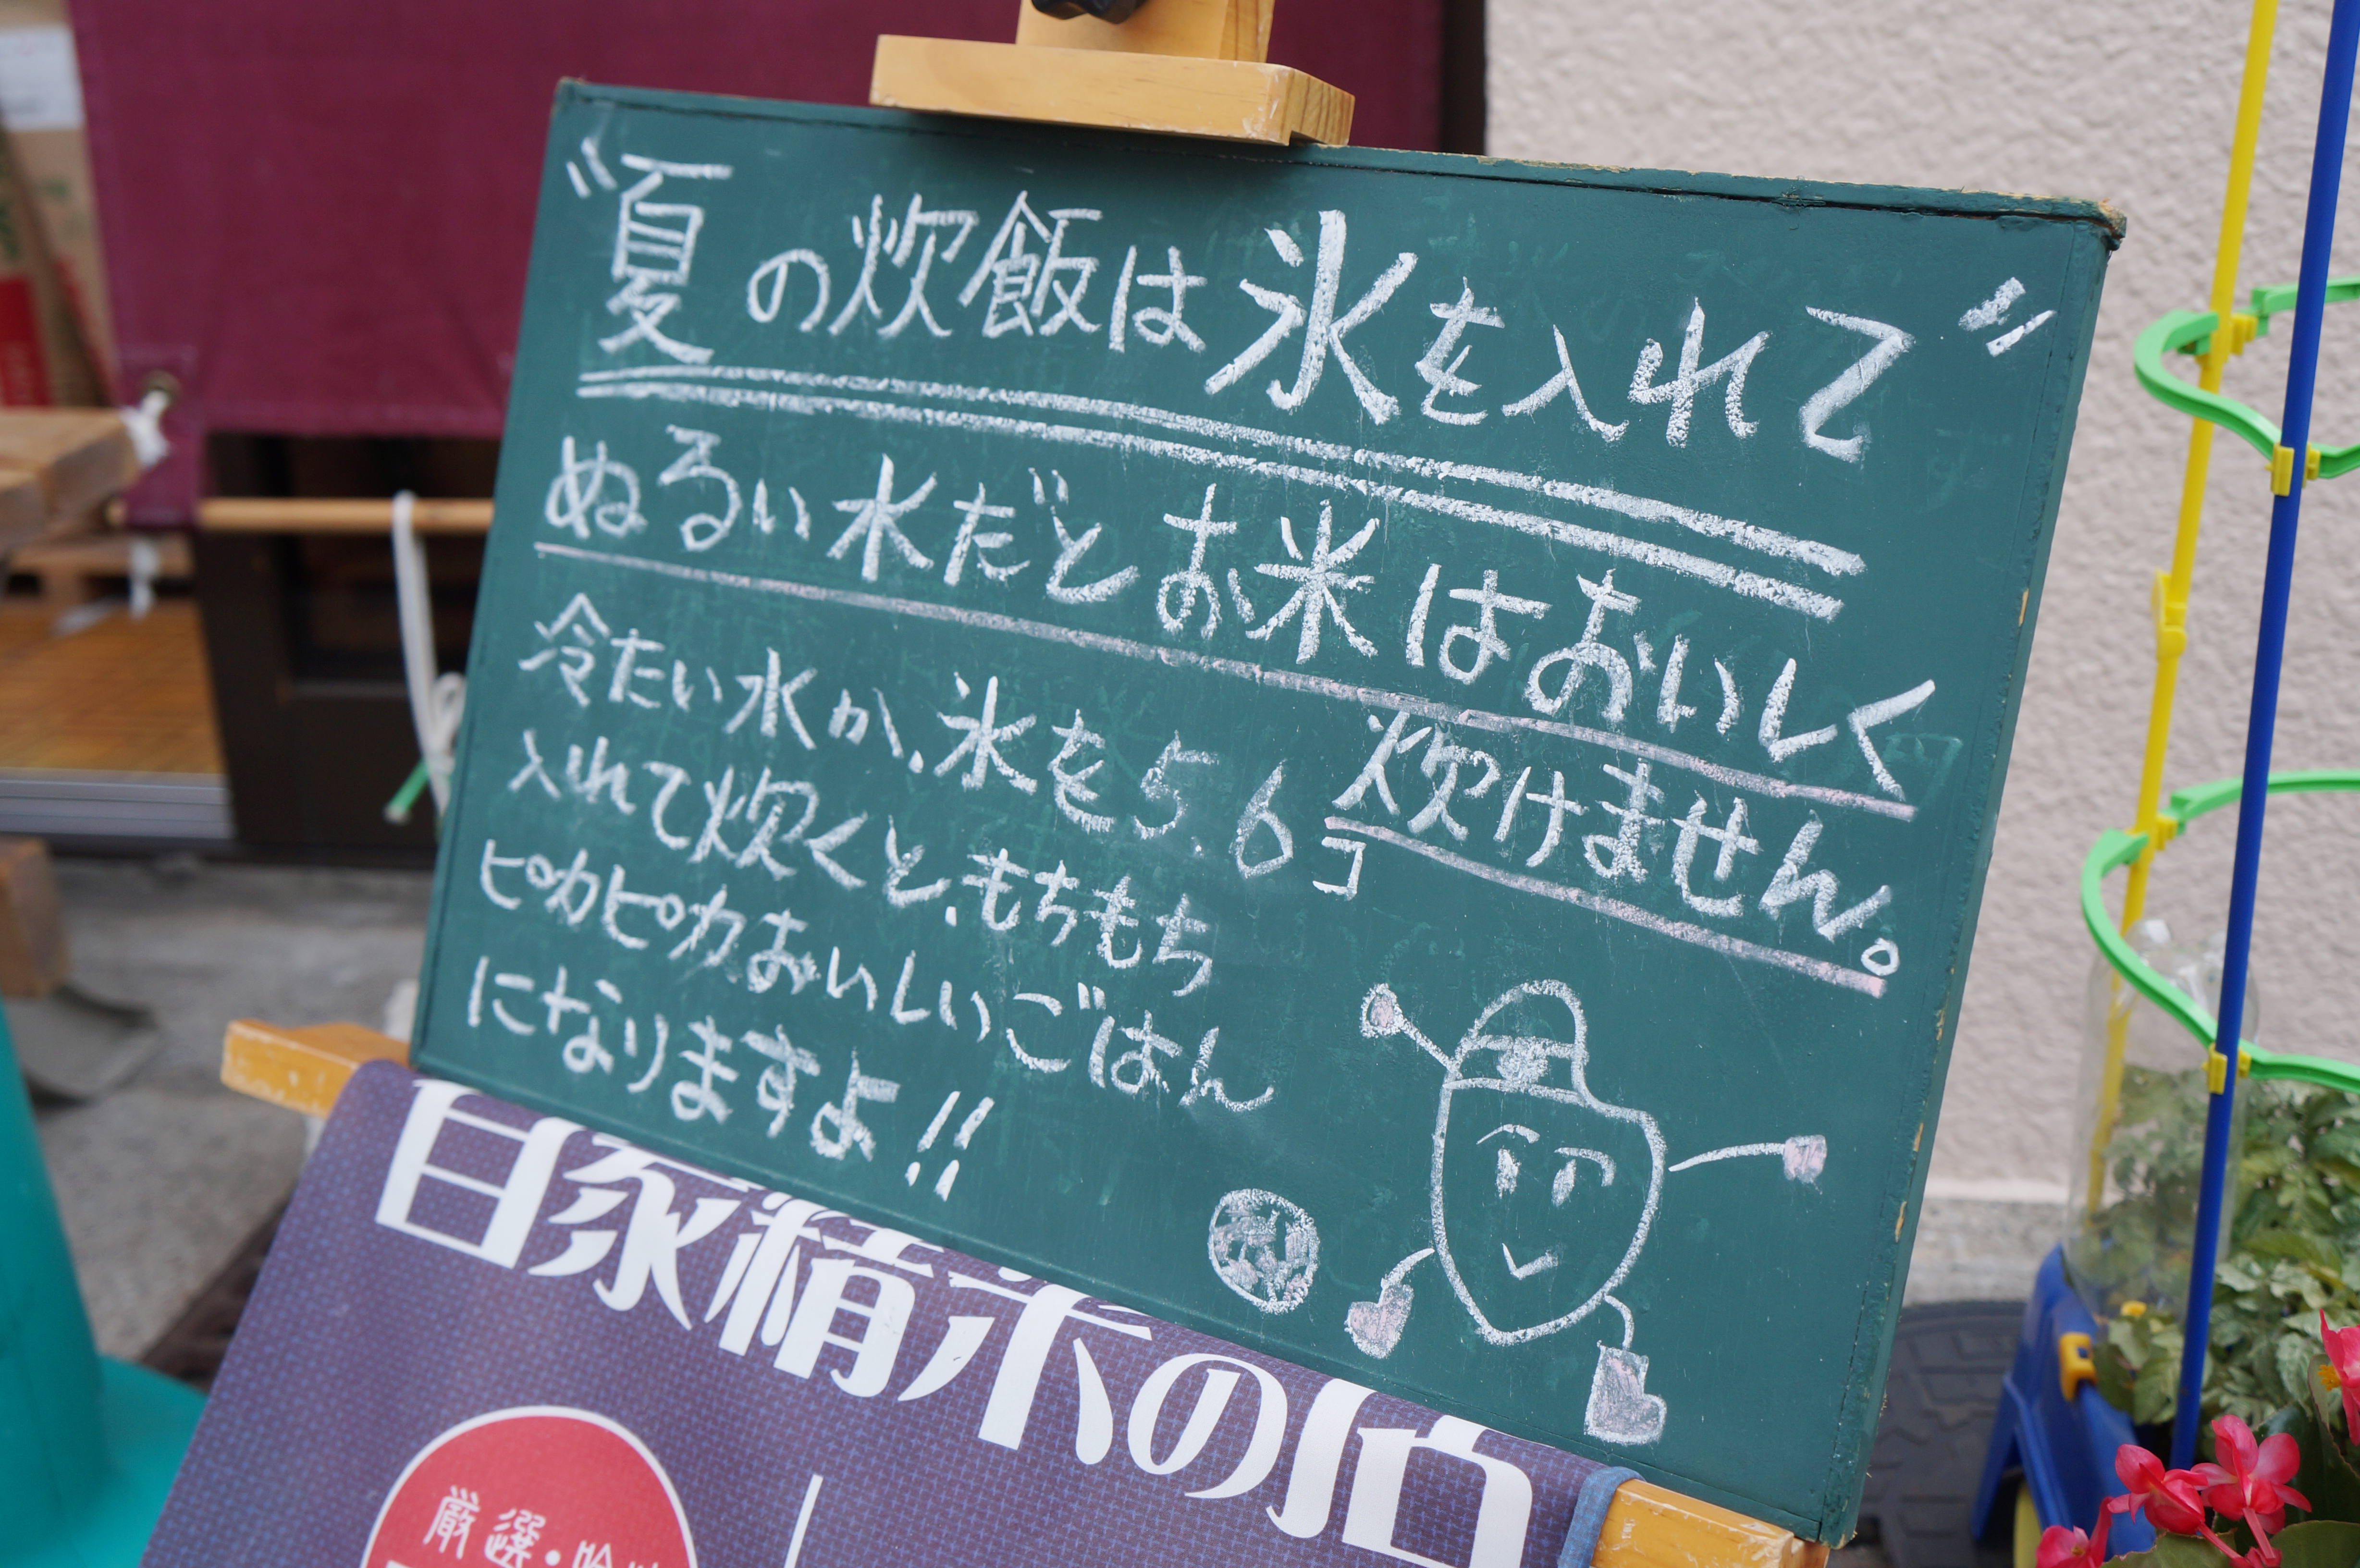 "夏の炊飯は氷を入れて"
ぬるい水だとお米はおいしく
炊けません。
冷たい水か、氷を5.6コ
入れて炊くと、もちもち
ピカピカおいしいごはん
になりますよ!!
自家精米の店
厳選・吟